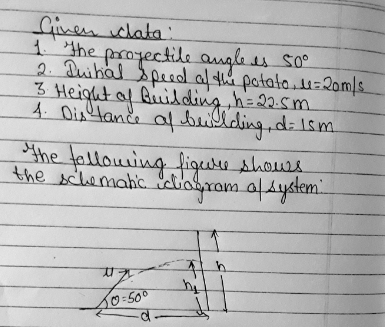 Given data:
1. The projectile angle is 50°
2. Initial speed of the potato, u=20m/s
3 Height of Building, h=22.5m
4. Distance of building, d=15m
The following figure shows
the schematic diagram of system:
u
h
h₁
θ=50°
d